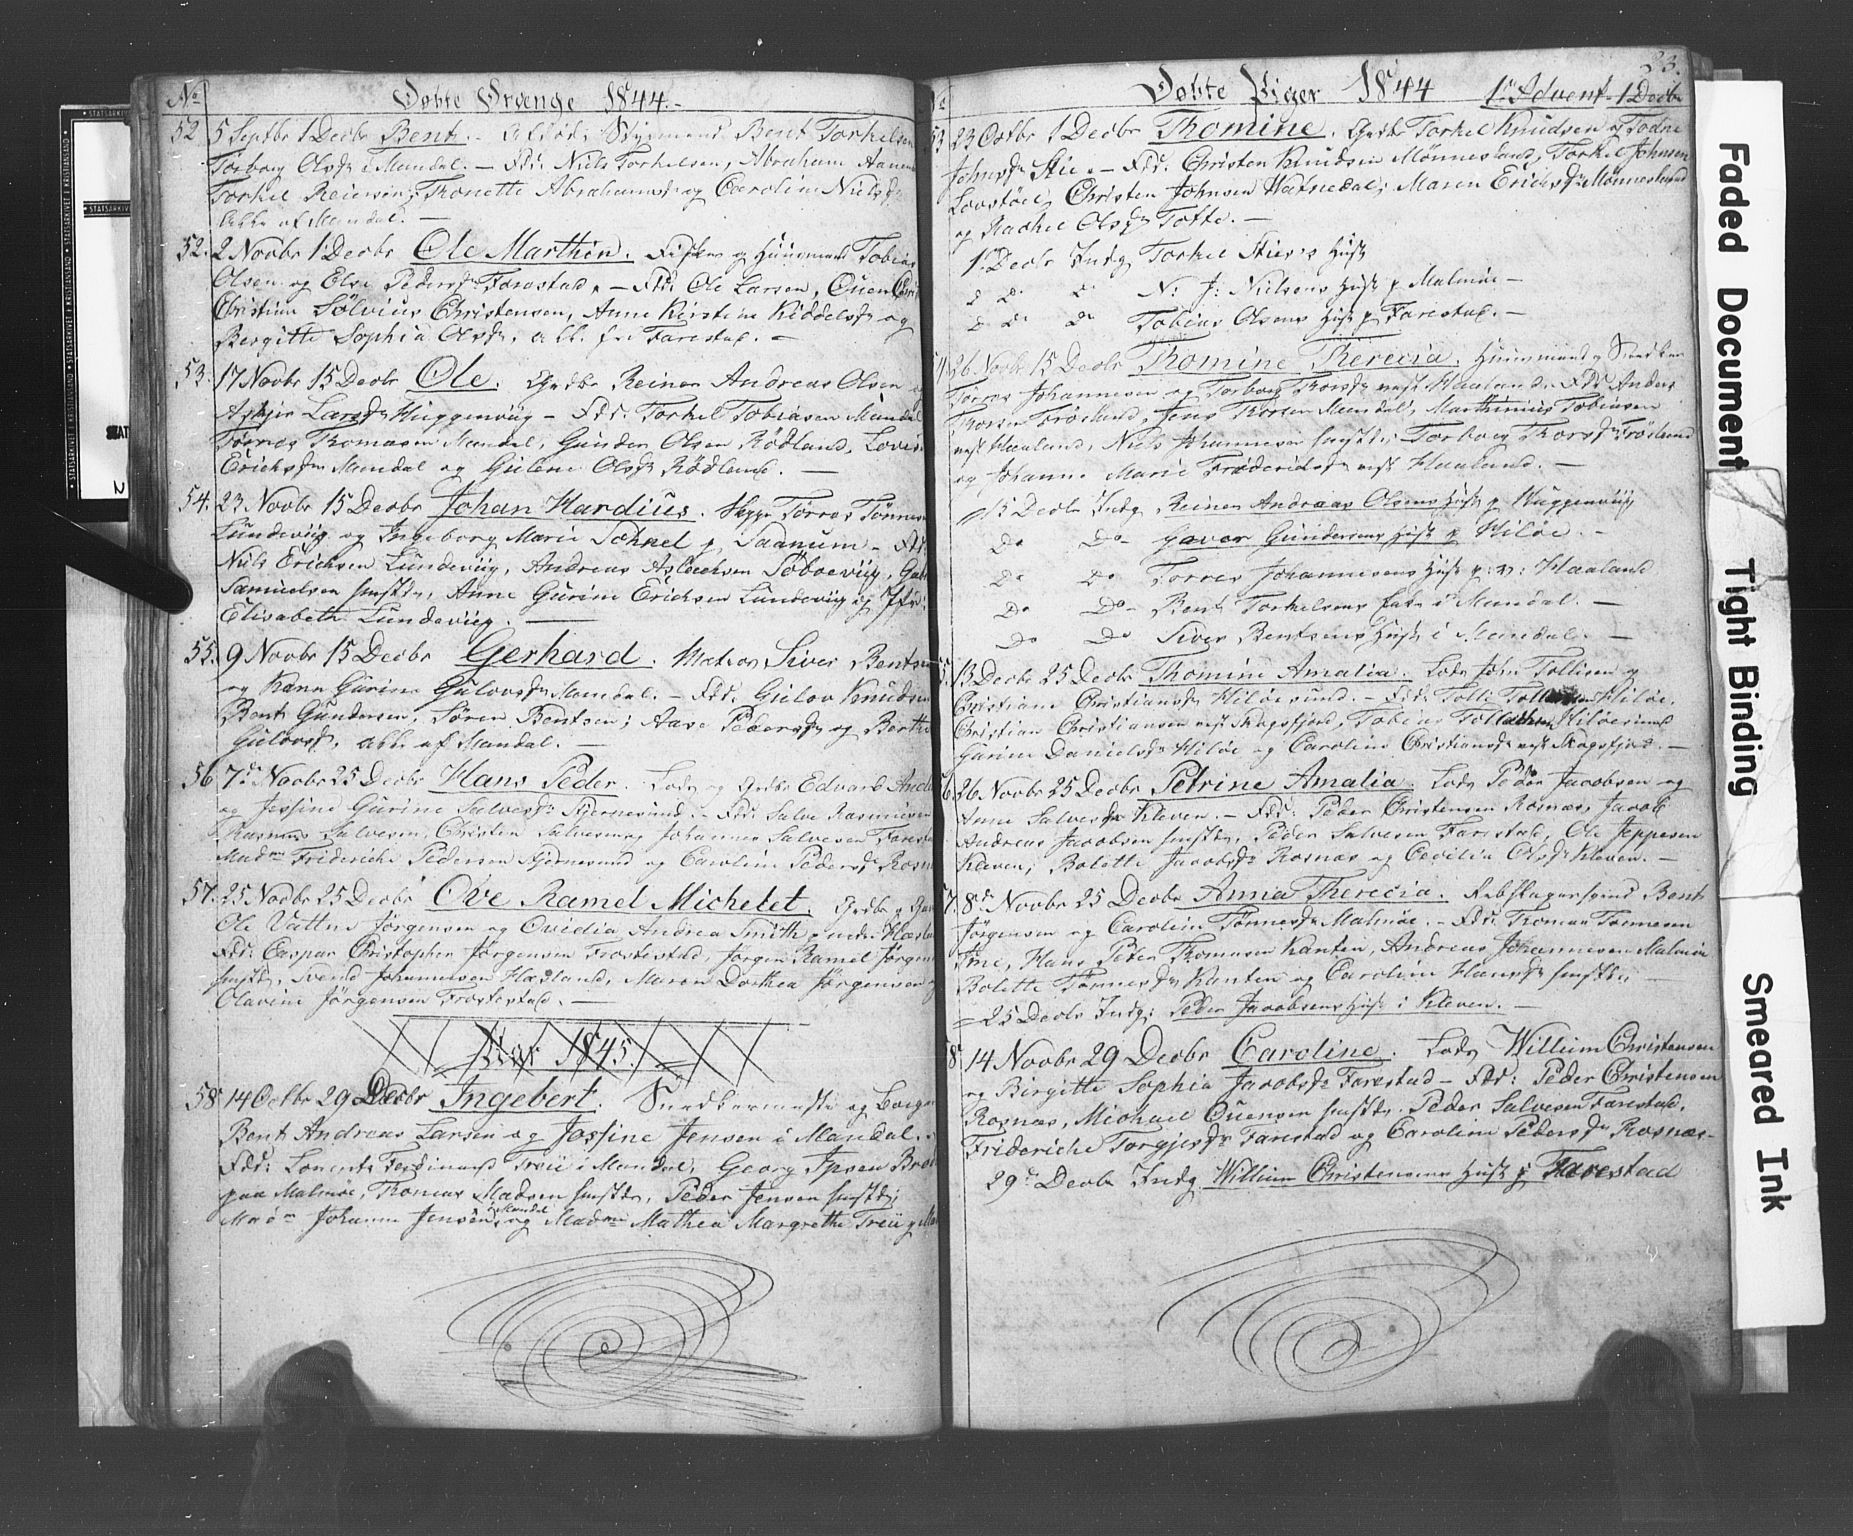 No
Døbte Drenge 1844.-
52 5 Septbr 1 Decbr Bent. - Styrmand Bent Torkelsen
Torborg Olsdr i Mandal. - Fdr: Niels Torkelsen, Abraham Aanens
Torkel Reiersen; Thonette Abrahamsdr og Caroline Nielsdr
alle af Mandal. -
52. 2 Novbr 1 Decbr Ole Marthin. Fisker og Huusmand Tobias
Olsen og Else Pedersdr Farestad. - Fdr: Ole Larsen, Ouen
Christian Sølvius Christensen, Anne Kirstine Kiddelsdr og
Bergitte Sophia Olsdr, alle fra Farestad. -
53. 17 Novbr 15 Decbr Ole. Grdbr Reiner Andreas Olsen
Larsdr Huggenviig - Fdr: Torkel Tobiasen Mandal
Tønnes Thomasen Mandal, Gunder Olsen Rødland, Lovise
Erichsdr Mandal og Gulene Olsdr Rødland. -
54. 23 Novbr 15 Decbr Johan Hardius. Torres Tønnes
Lundeviig og Ingeborg Marie Tohnel p Saanum - Fdr:
Niels Erichsen Lundeviig, Andreas Aslachsen
Samuelsen smstds, Anne Gurine Erichsen Lundeviig og Jfr:
Elisabeth Lundeviig. -
55. 9 Novbr 15 Decbr Gerhard. Matros Siver Bentsen
og Karen Gurine Gulovsdr Mandal. - Fdr: Gulov Knudsen
Bent Gundersen, Søren Bentsen; Aase Pedersdr og Berthe
Gulovsdr, alle af Mandal. -
56 7de Novbr 25 Decbr Hans Peder. Lods og Grdbr Edvard
og Jossine Gurine Salvesdr Kjernesund. - Fdr: Salve Rasmusen
Rasmus Salvesen, Christen Salvesen og Johannes Salvesen Farestad
Madme Frideriche Pedersen Kjernesund og Caroline Pedersdr Rosnæs
57. 25 Novbr 25 Decbr Ove Ramel Michelet. Grdbr og
Ole Vattne Jørgensen og Ovidia Andrea Smith p
Fdr: Caspar Christopher Jørgensen Frostestad, Jørgen Ramel Jørgens
smstds, Svend Johannesen Hesland, Maren Dorthea Jørgensen
Olavine Jørgensen Frostestad. -
Aar 1845.
58 14 Octbr 29 Decbr Ingebert. Snedkermester og Borger
Bent Andreas Larsen og Jossine Jensen i Mandal. -
Fdr: Lorents Ferdinand Treu i Mandal, Georg Ipsen
paa Malmøe, Thomas Madsen smstds, Peder Jensen smstds;
Madme Johanne Jensen i Mandal og Madme Mathea Margrethe Treu
No
33.
Døbte Piger 1844 1ste Advent - 1 Decbr
53 23 Octbr 1 Decbr Thomine. Grdbr Torkel Knudsen og Todne
Johnsdr Stie. - Fdr: Christen Knudsen Mønnesland, Torkel Johnsen
Lovstøel, Christen Johnsen Hatnedal; Maren Erichsdr Mønnesland
og Rachel Olsdr Tofte. -
1 Decbr Indg Torkel Stie's Hustr
d Do do N: J: Nielsens Hust p Malmøe -
d Do do Tobias Olsens Hust p Farestad. -
54 26 Novbr 15 Decbr Thomine Therecia. Huusmand og Snedker
Torres Johannesen og Torborg Thorsdr vest Haaland. Fdr: Anders
Thorsen Frøsland, Jens Thorsen Mandal, Marthinius Tobiasen
vest Haaland, Niels Johannesen smstds; Torborg Thorsdr Frøsland
og Johanne Marie Frederichsdr vest Haaland. -
15 Decbr Indg Reiner Andreas Olsens Hust p Huggenviig
Do Do Gaver Gundersens Hust p Hiløe. -
Do Do Torres Johannesens Hust p: v: Haaland
Do Do Bent Torkelsens i Mandal. -
Do Do Siver Bentsens Hust i Mandal. -
55. 13 Decbr 25 Decbr Thomine Amalia. Lods John Tollisen og
Christiane Christiansdr Hiløesund. - Fdr: Tolli Tollisen Hiløe,
Christian Christiansen vest Skogsfjord, Tobias Tollisen Hiløesund
Gurine Danielsdr Hiløe og Caroline Christiansdr vest Skogsfjord. -
56 26 Novbr 25 Decbr Petrine Amalia. Lods Peder Jacobsen og
Anne Salvesdr Kleven. - Fdr: Peder Christensen Rosnæs, Jacob
Andreas Jacobsen smstds, Peder Salvesen Farestad, Ole Jeppesen
Kleven; Bolette Jacobsdr Rosnæs og Cecilia Olsdr Kleven. -
57. 8de Novbr 25 Decbr Anna Therecia. Rebslagersvend Bent
Jørgensen og Caroline Tønnesdr Malmøe. - Fdr: Thomas Tønnesen
Ime, Hans Peter Thomasen Kanten, Andreas Johannesen Malmøe
Bolette Tønnesdr Kanten og Caroline Hansdr smstds. -
= 25 Decbr Indg: Peder Jacobsens Hust i Kleven. -
58 14 Novbr 29 Decbr Caroline. Lods Willum Christensen
og Birgitte Sophia Jacobsdr Farestad - Fdr: Peder Christensen
Rosnæs, Michael Ouensen smstds. Peder Salvesen Farestad,
Frideriche Torgjesdr Farestad og Caroline Pedersdr Rosnæs-
29de Decbr Indg Willum Christensens Hust p Farestad
Faded Document
Tight Binding
Smeared Ink